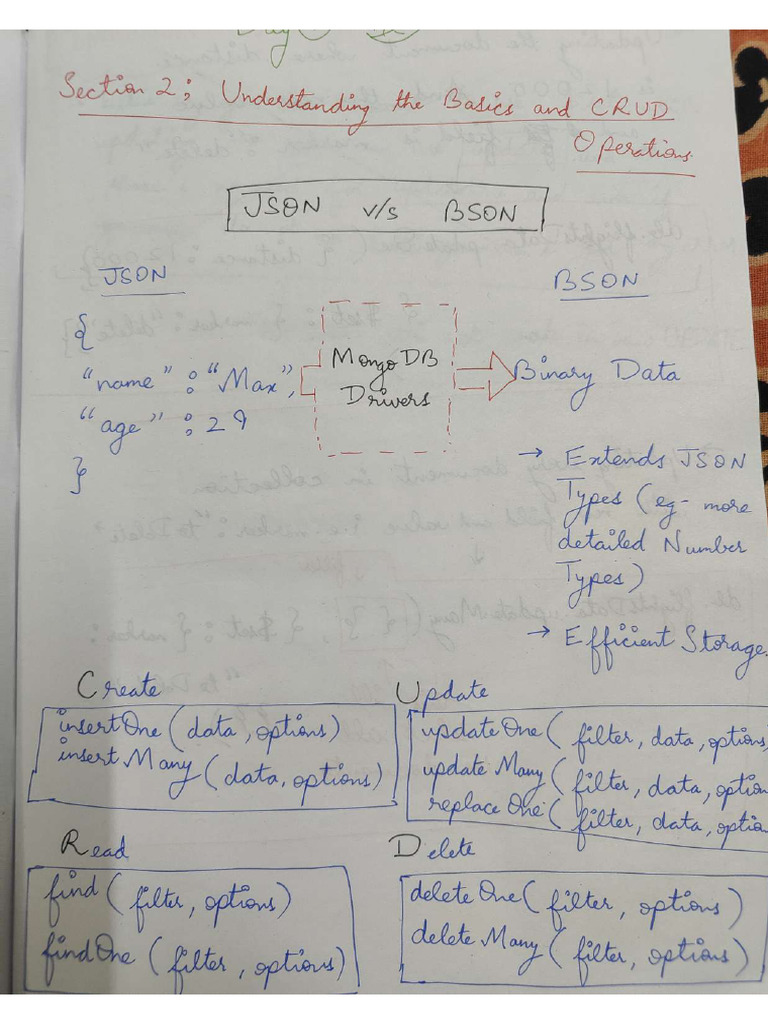 Day
Section 2; Understanding the Basics and CRUD
Operations
JSON v/s BSON
JSON
{
"name" : "Max",
"age" : 29
}
MongoDB
Drivers
BSON
Binary Data
→ Extends JSON
Types (eg- more
detailed Number
Types)
→ Efficient Storage.
Create
insertOne (data, options)
insertMany (data, options)
Update
updateOne (filter, data, options,
updateMany (filter, data, option
replaceOne (filter, data, optio
Read
find (filter, options)
findOne (filter, options)
Delete
deleteOne (filter, options)
deleteMany (filter, options)